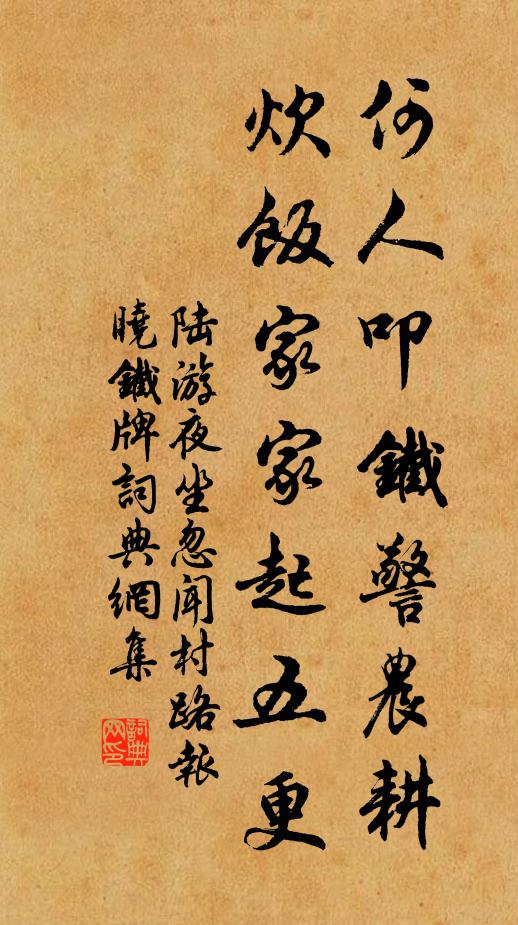 何人叩鐵警農耕
炊飯家家起五更
陆游夜坐忽闻村路报
曉鐵牌詞典網集
詞典
网印